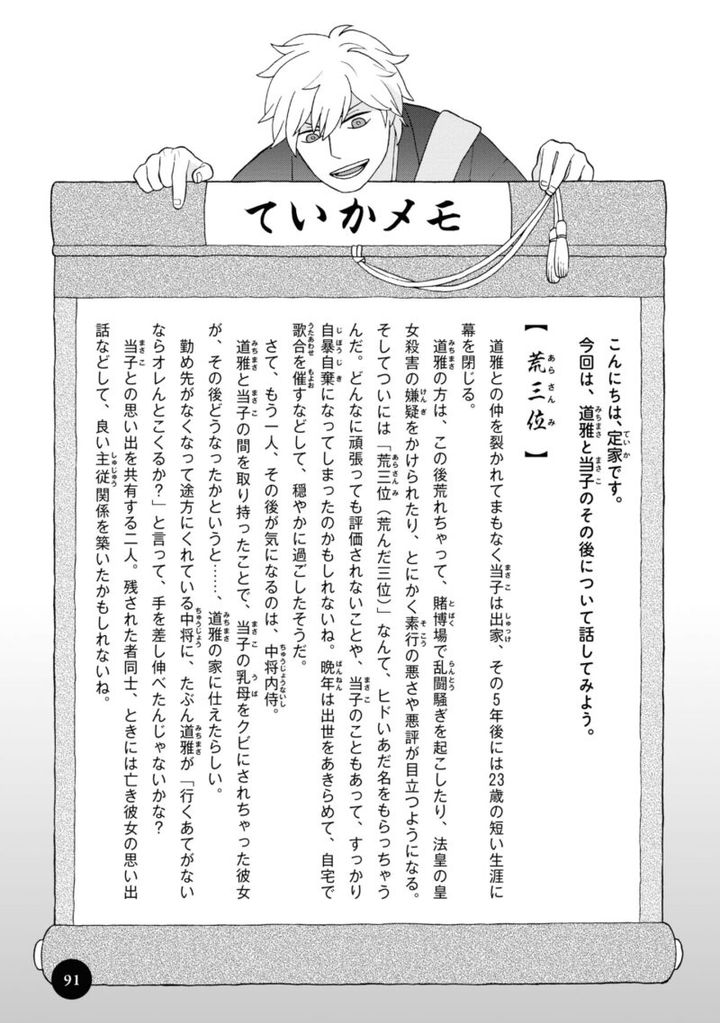 ていかメモ
こんにちは、定家です。
今回は、道雅と当子のその後について話してみよう。
【荒三位】
道雅との仲を裂かれてまもなく当子は出家、その5年後には23歳の短い生涯に
幕を閉じる。
道雅の方は、この後荒れちゃって、賭博場で乱闘騒ぎを起こしたり、法皇の皇
女殺害の嫌疑をかけられたり、とにかく素行の悪さや悪評が目立つようになる。
そしてついには「荒三位（荒んだ三位）」なんて、ヒドいあだ名をもらっちゃう
んだ。どんなに頑張っても評価されないことや、当子のこともあって、すっかり
自暴自棄になってしまったのかもしれないね。晩年は出世をあきらめて、自宅で
歌合を催すなどして、穏やかに過ごしたそうだ。
さて、もう一人、その後が気になるのは、中将内侍。
道雅と当子の間を取り持ったことで、当子の乳母をクビにされちゃった彼女
が、その後どうなったかというと……、道雅の家に仕えたらしい。
勤め先がなくなって途方にくれている中将に、たぶん道雅が「行くあてがない
ならオレんとこくるか？」と言って、手を差し伸べたんじゃないかな？
当子との思い出を共有する二人。残された者同士、ときには亡き彼女の思い出
話などして、良い主従関係を築いたかもしれないね。
91